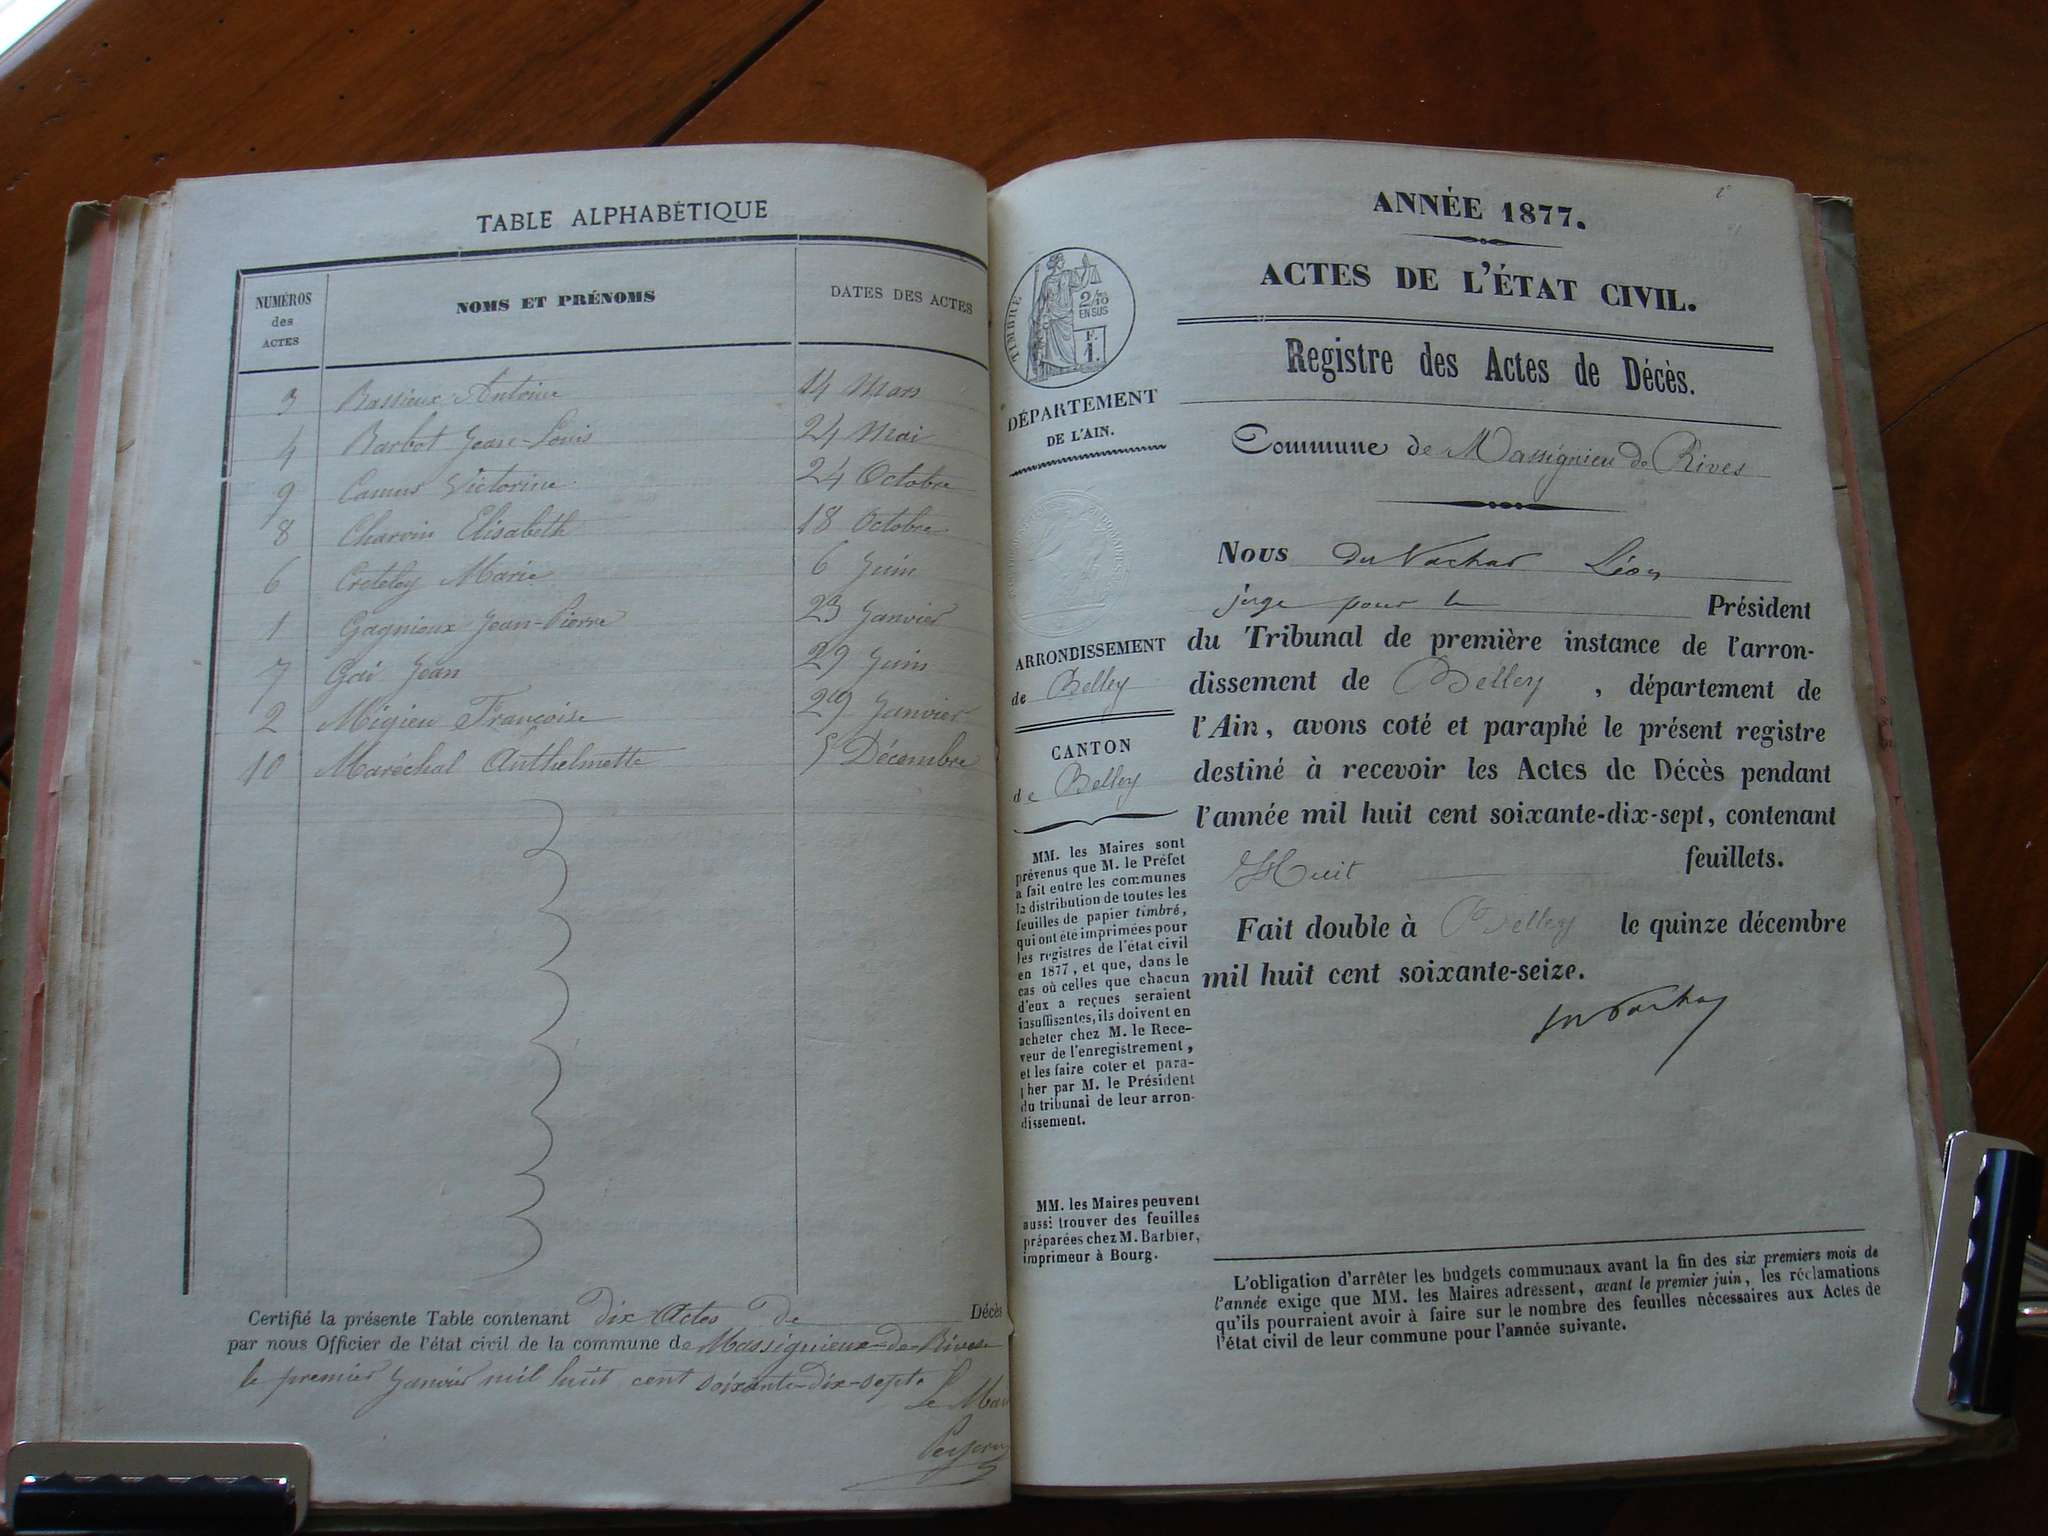 TABLE ALPHABÉTIQUE
NUMÉROS des ACTES
NOMS ET PRÉNOMS
DATES DES ACTES
3 Bassieux Antoine 14 Mars
4 Barbot Jean-Louis 24 Mai
9 Camus Victorine 24 Octobre
8 Charvin Elisabeth 18 Octobre
6 Marie 6 Juin
1 Gagnieux Jean-Pierre 23 Janvier
7 Jean 29 Juin
2 Migieu Françoise 29 Janvier
10 Maréchal Anthelmette 5 Décembre
Certifié la présente Table contenant dix Actes de Décès
par nous Officier de l'état civil de la commune de Massignieux-de-Rives
le premier Janvier mil huit cent soixante-dix-sept.
Le
ANNÉE 1877.
ACTES DE L'ÉTAT CIVIL.
Registre des Actes de Décès.
Commune de Massignieu de Rives
TIMBRE
2/10
EN SUS
F.
1.
DÉPARTEMENT
DE L'AIN.
ARRONDISSEMENT
de Belley
CANTON
de Belley
MM. les Maires sont
prévenus que M. le Préfet
a fait entre les communes
la distribution de toutes les
feuilles de papier timbré,
qui ont été imprimées pour
les registres de l'état civil
en 1877, et que, dans le
cas où celles que chacun
d'eux a reçues seraient
insuffisantes, ils doivent en
acheter chez M. le Rece-
veur de l'enregistrement,
et les faire coter et para-
pher par M. le Président
du tribunal de leur arron-
dissement.
MM. les Maires peuvent
aussi trouver des feuilles
préparées chez M. Barbier,
imprimeur à Bourg.
Nous du Vachat Léon
juge pour le Président
du Tribunal de première instance de l'arron-
dissement de Belley, département de
l'Ain, avons coté et paraphé le présent registre
destiné à recevoir les Actes de Décès pendant
l'année mil huit cent soixante-dix-sept, contenant
Huit feuillets.
Fait double à Belley le quinze décembre
mil huit cent soixante-seize.
L'obligation d'arrêter les budgets communaux avant la fin des six premiers mois de
l'année exige que MM. les Maires adressent, avant le premier juin, les réclamations
qu'ils pourraient avoir à faire sur le nombre des feuilles nécessaires aux Actes de
l'état civil de leur commune pour l'année suivante.